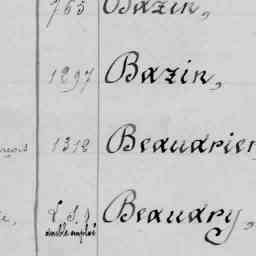 765 Bazin,
1297 Bazin,
1312 Beaudrier
Beaudry,
double emploi